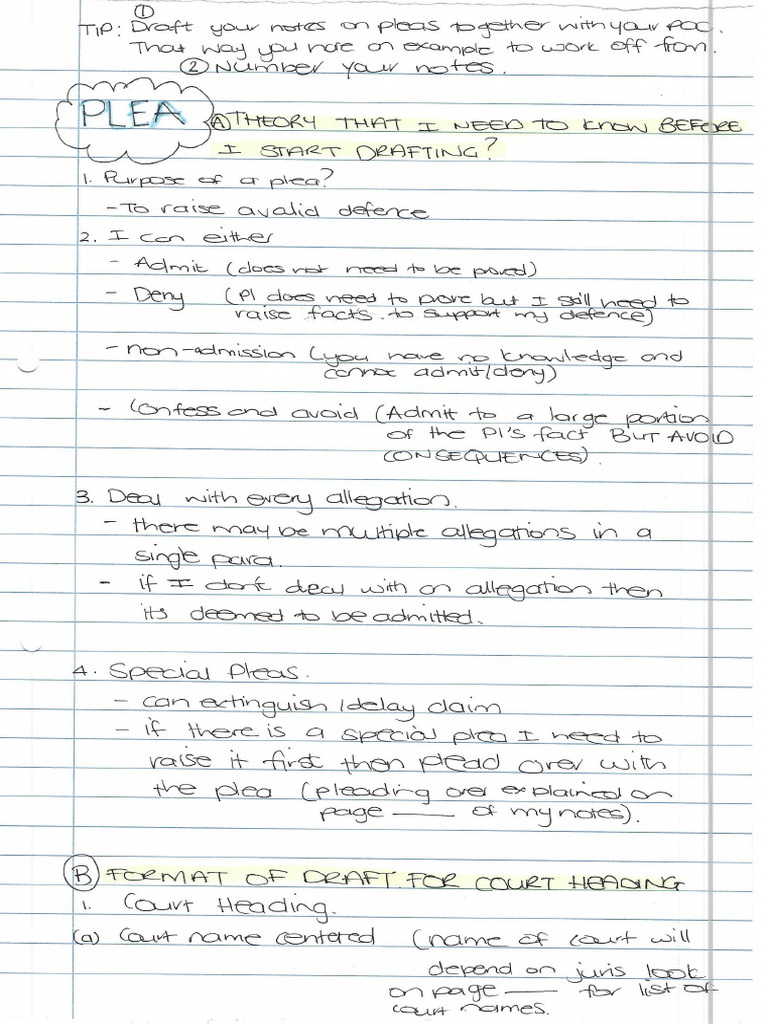 ①
TIP: Draft your notes on pleas together with your POC.
That way you have an example to work off from.
② Number your notes.
PLEA
Ⓐ THEORY THAT I NEED TO KNOW BEFORE
I START DRAFTING?
1. Purpose of a plea?
- To raise a valid defence
2. I can either
- Admit (does not need to be proved)
- Deny (Pl does need to prove but I still need to
raise facts to support my defence)
- non-admission (you have no knowledge and
cannot admit/deny)
- Confess and avoid (Admit to a large portion
of the Pl's fact BUT AVOID
CONSEQUENCES).
3. Deal with every allegation.
- there may be multiple allegations in a
single para.
- if I don't deal with an allegation then
its deemed to be admitted.
4. Special Pleas.
- can extinguish/delay claim
- if there is a special plea I need to
raise it first then plead over with
the plea (pleading over explained on
page ___ of my notes).
Ⓑ FORMAT OF DRAFT FOR COURT HEADING
1. Court Heading.
(a) Court name centered (name of court will
depend on juris look
on page ___ for list of
court names.